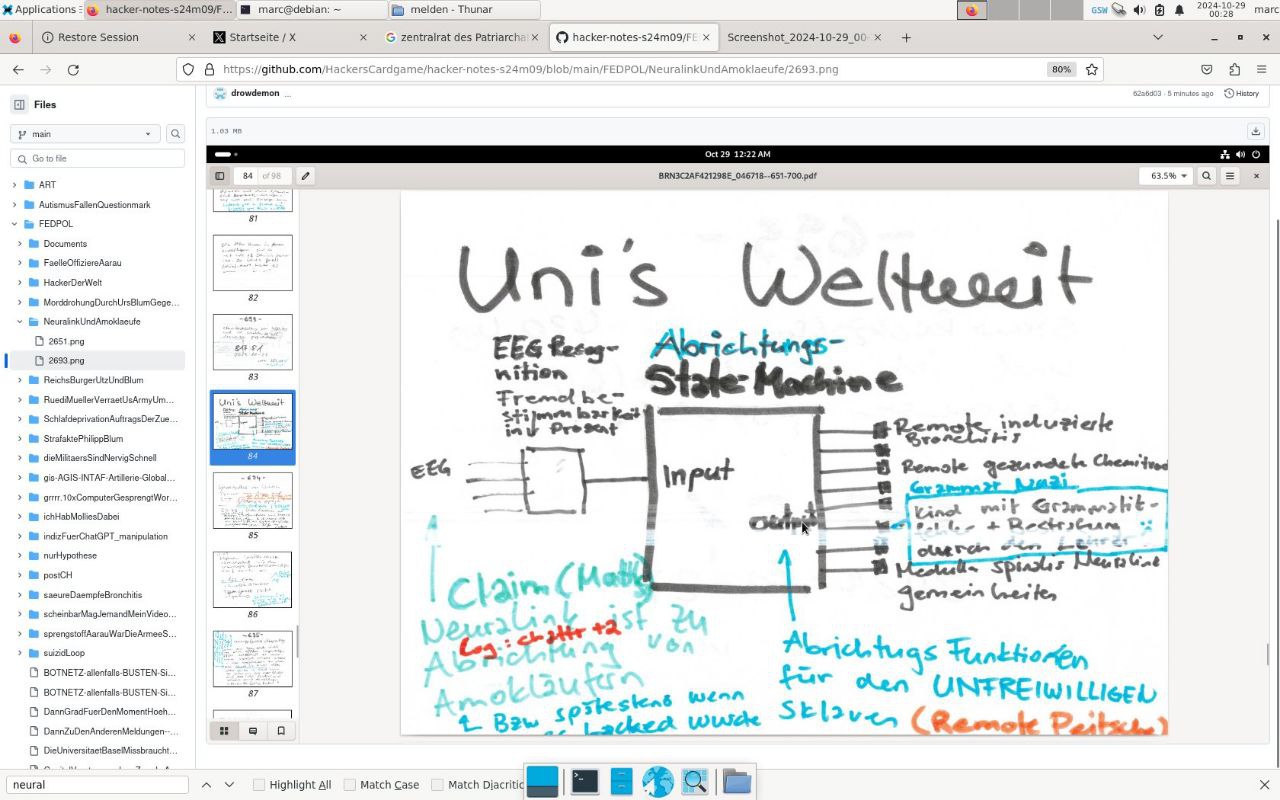 Applications
hacker-notes-s24m09/F...
marc@debian: ~
melden - Thunar
GSW
2024-10-29
00:28
marc
Restore Session
Startseite / X
zentralrat des Patriarcha
hacker-notes-s24m09/FE
Screenshot_2024-10-29_00-
https://github.com/HackersCardgame/hacker-notes-s24m09/blob/main/FEDPOL/NeuralinkUndAmoklaeufe/2693.png
80%
Files
main
Go to file
ART
AutismusFallenQuestionmark
FEDPOL
Documents
FaelleOffiziereAarau
HackerDerWelt
MorddrohungDurchUrsBlumGege...
NeuralinkUndAmoklaeufe
2651.png
2693.png
ReichsBurgerUtzUndBlum
RuediMuellerVerraetUsArmyUm...
SchlafdeprivationAuftragsDerZue...
StrafaktePhilippBlum
dieMilitaersSindNervigSchnell
gis-AGIS-INTAF-Artillerie-Global...
grrrr.10xComputerGesprengtWor...
ichHabMolliesDabei
indizFuerChatGPT_manipulation
nurHypothese
postCH
saeureDaempfeBronchitis
scheinbarMagJemandMeinVideo...
sprengstoffAarauWarDieArmeeS...
suizidLoop
BOTNETZ-allenfalls-BUSTEN-Si...
BOTNETZ-allenfalls-BUSTEN-Si...
DannGradFuerDenMomentHoeh...
DannZuDenAnderenMeldungen--...
DieUniversitaetBaselMissbraucht...
drowdemon ...
62a6d03 · 5 minutes ago
History
1.03 MB
Oct 29 12:22 AM
84 of 98
BRN3C2AF421298E_046718--651-700.pdf
63.5%
81
82
83
84
85
86
87
Uni's Weltweit
EEG Recog-
nition
Fremdbe-
stimmbarkeit
in Prozent
Abrichtungs-
State-Machine
EEG
Input
output
Remote induzierte
Bronchitis
Remote gezündete Chemitrod
Grammar Nazi
Kind mit Grammatik-
fehler + Bestrafung
durch den Lehrer
Medulla spinalis Neuralink
gemeinheiten
Claim (Math)
Neuralink ist zu
Log: chattr +2
Abrichtung von
Amokläufern
Bzw spätestens wenn
hacked wurde
Abrichtugs Funktionen
für den UNFREIWILLIGEN
Sklaven (Remote Peitsche)
neural
Highlight All
Match Case
Match Diacritic